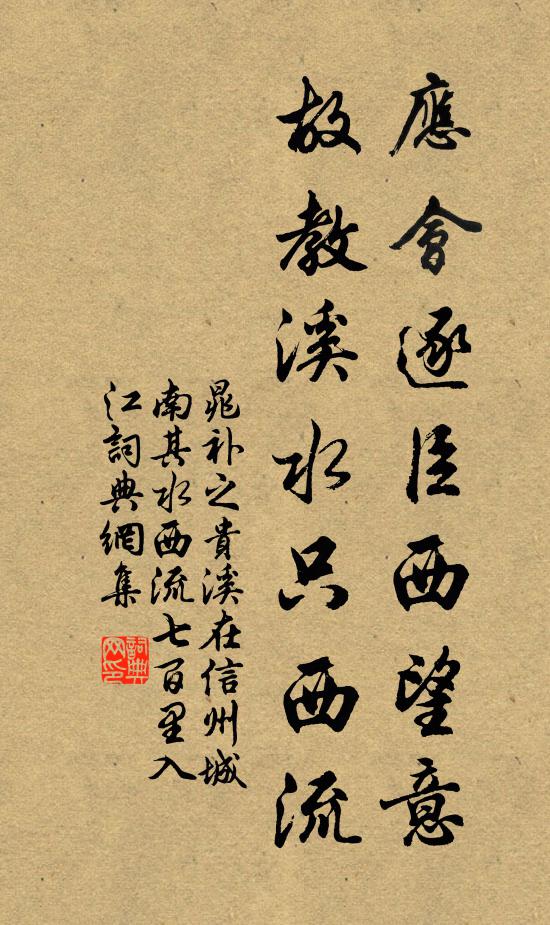 應會逐臣西望意
故教溪水只西流
晁补之貴溪在信州城
南其水西流七百里入
江詞典網集
詞典
网印